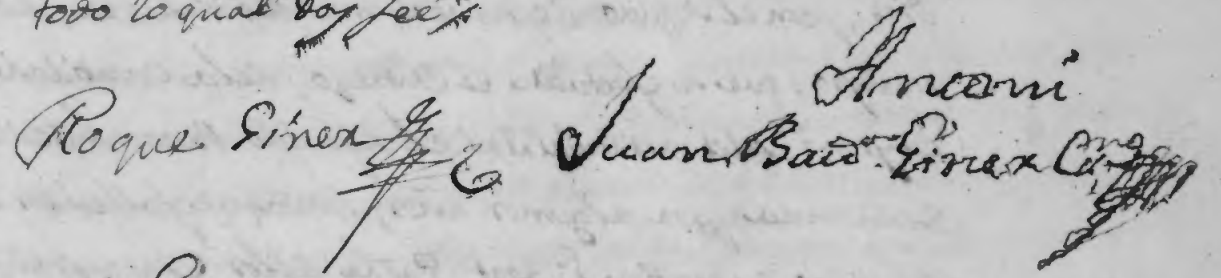 todo lo qual doy fee
Antemi
Roque Giner Juan Baut.ª Giner Ess.no